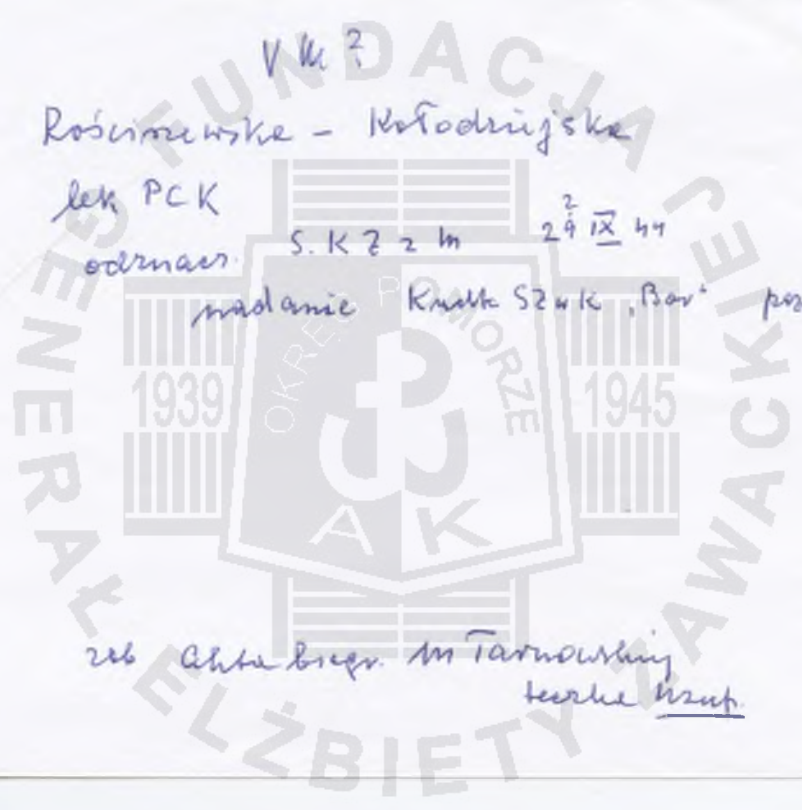 V M ?
Rościszewska – Kołodziejska
lek PCK
odznacz. S. K Z z M 2 29 IX 44
nadanie Kmdt SZ w K "Bor"
zob Akta biogr. M Tarnowskiej
teczka Uzup.
FUNDACJA GENERAŁ ELŻBIETY ZAWACKIEJ
OKRĘG POMORZE
1939 1945
AK